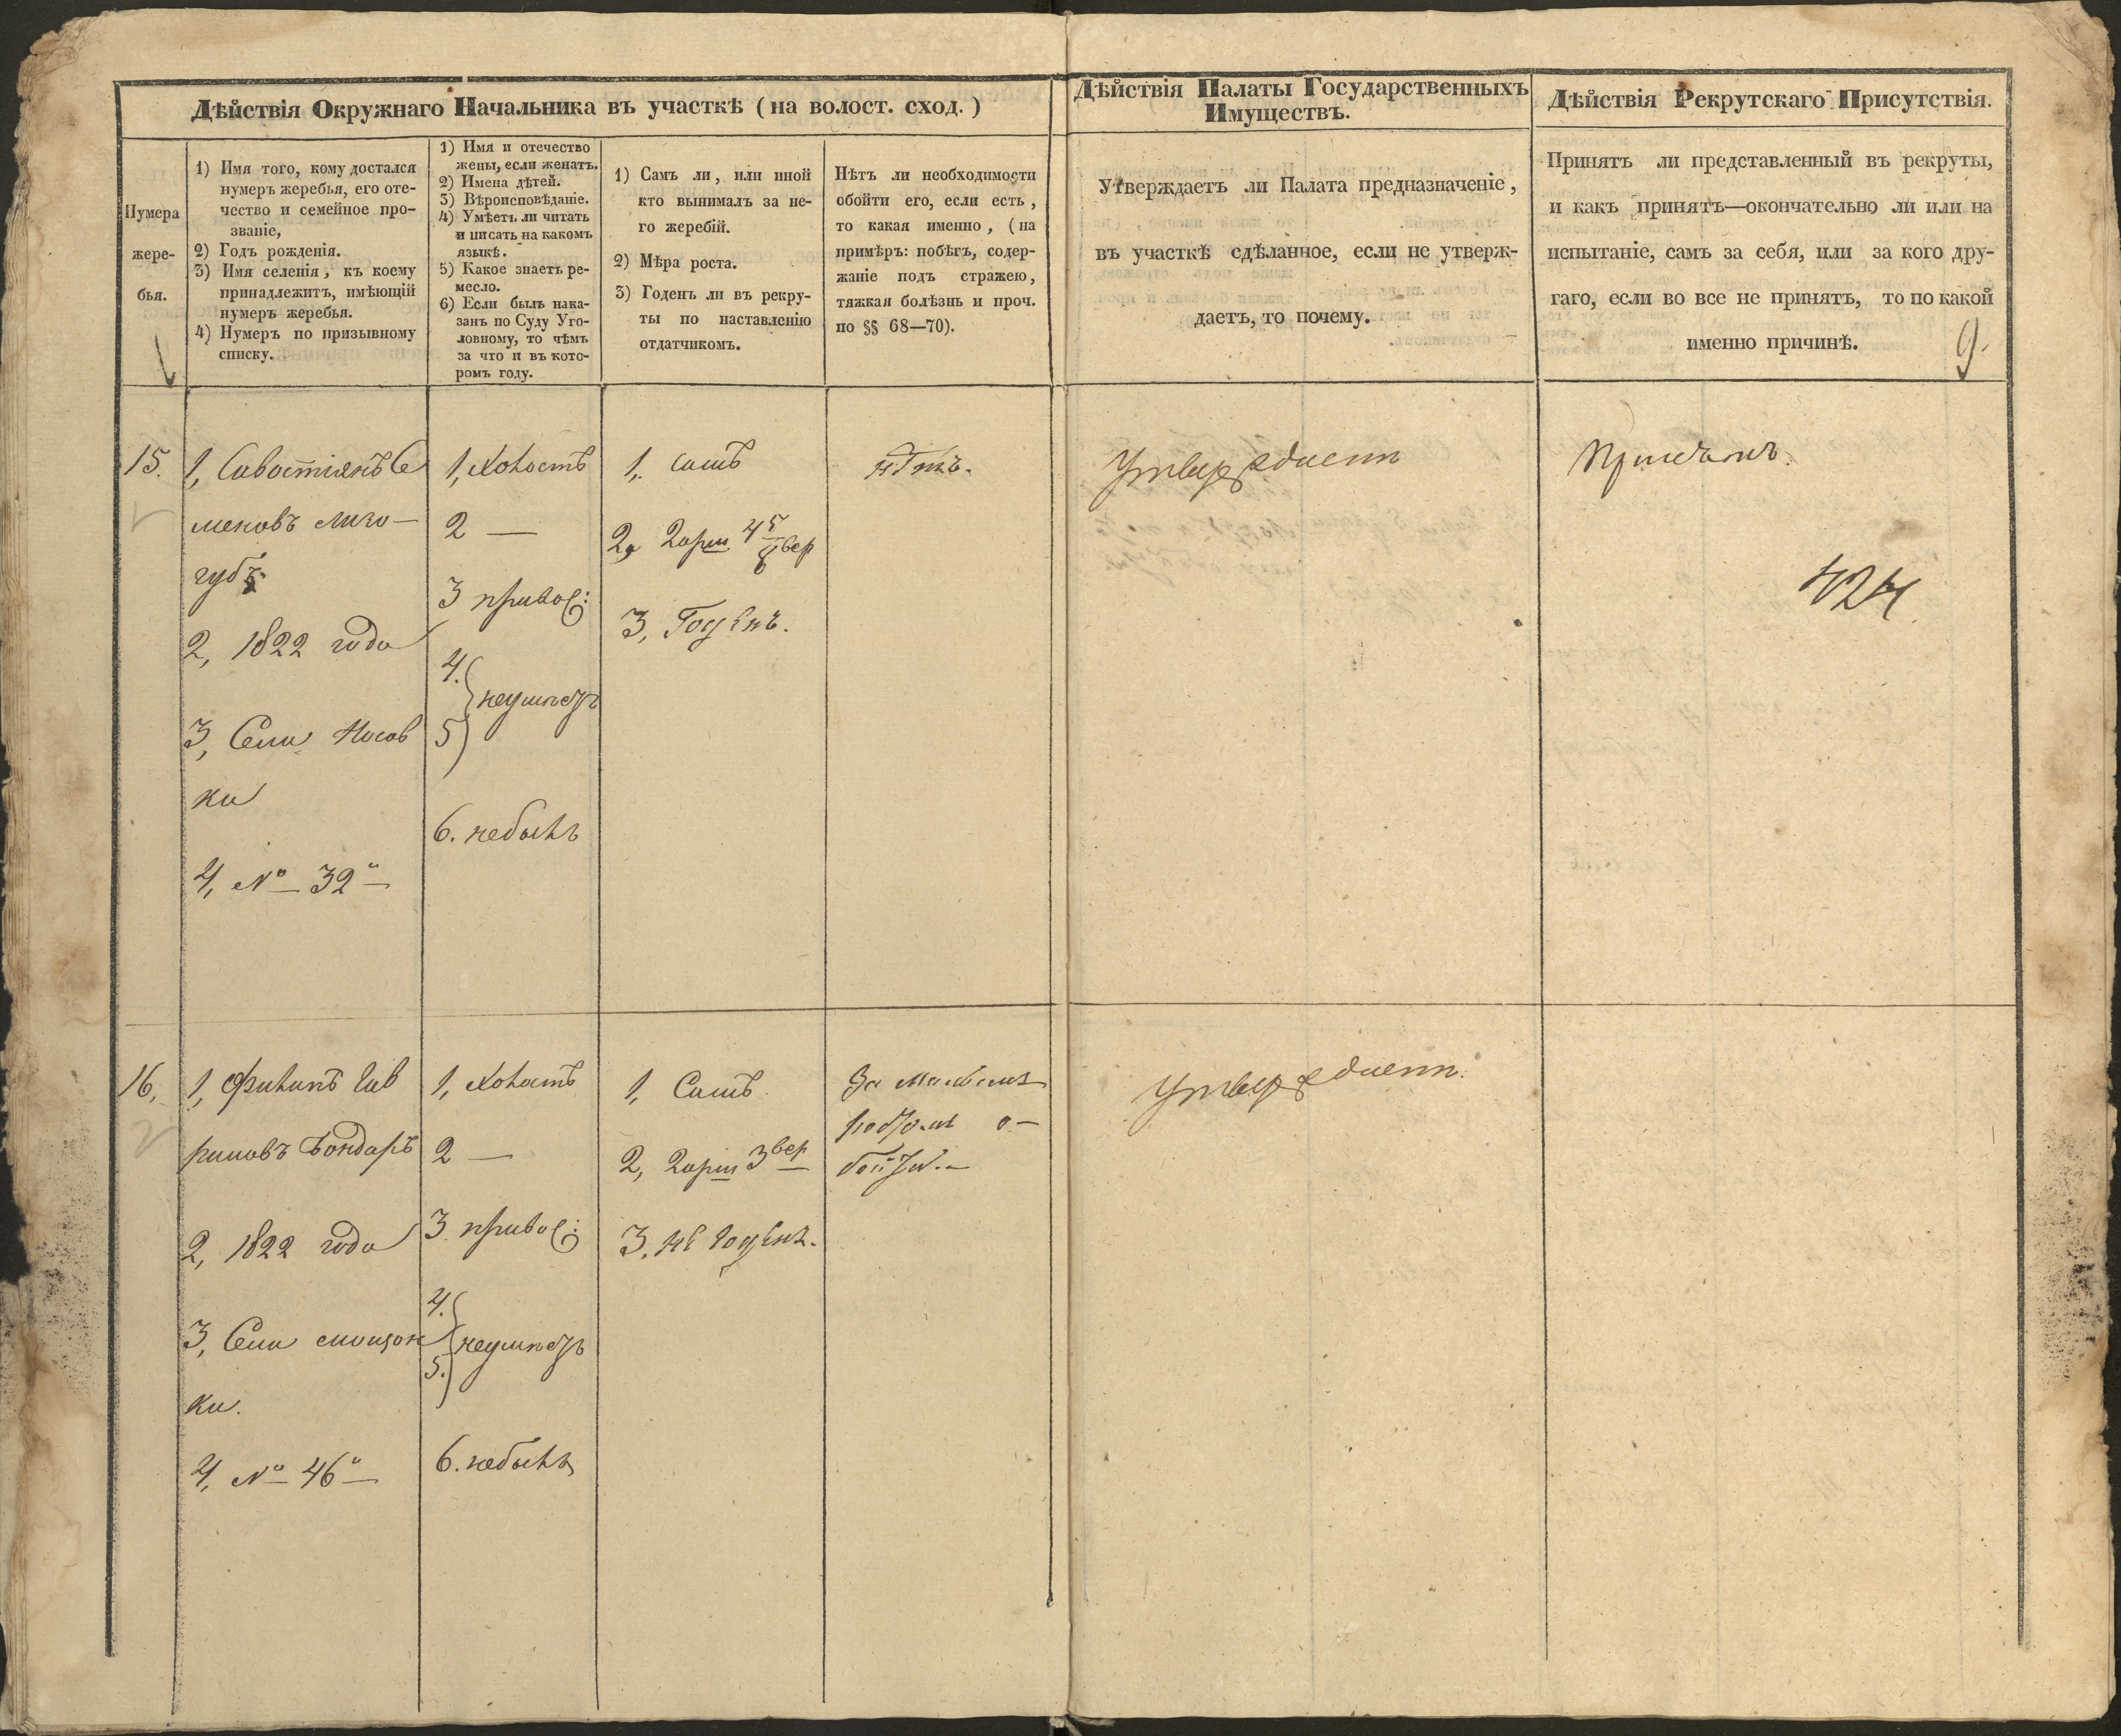 Дѣйствія Окружнаго Начальника въ участкѣ (на волост. сход.)
Нумера
жере-
бья.
1) Имя того, кому достался
нумеръ жеребья, его оте-
чество и семейное про-
званіе,
2) Годъ рожденія.
3) Имя селенія, къ коему
принадлежитъ, имѣющій
нумеръ жеребья.
4) Нумеръ по призывному
списку.
1) Имя и отечество
жены, если женатъ.
2) Имена дѣтей.
3) Вѣроисповѣданіе.
4) Умѣетъ ли читать
и писать на какомъ
языкѣ.
5) Какое знаетъ ре-
месло.
6) Если былъ нака-
занъ по Суду Уго-
ловному, то чѣмъ
за что и въ кото-
ромъ году.
1) Самъ ли, или иной
кто вынималъ за не-
го жеребій.
2) Мѣра роста.
3) Годенъ ли въ рекру-
ты по наставленію
отдатчикомъ.
Нѣтъ ли необходимости
обойти его, если есть,
то какая именно, (на
примѣръ: побѣгъ, содер-
жаніе подъ стражею,
тяжкая болѣзнь и проч.
по §§ 68—70).
Дѣйствія Палаты Государственныхъ
Имуществъ.
Утверждаетъ ли Палата предназначеніе,
въ участкѣ сдѣланное, если не утверж-
даетъ, то почему.
Дѣйствія Рекрутскаго Присутствія.
Принятъ ли представленный въ рекруты,
и какъ принятъ—окончательно ли или на
испытаніе, самъ за себя, или за кого дру-
гаго, если во все не принятъ, то по какой
именно причинѣ.
9.
15.
1, Савостіянъ Се
меновъ Лизо—
губъ
2, 1822 года
3, Села Носов
ки
4, № 32
1, Холостъ
2 —
3 правос:
4. } неумѣетъ
5
6. небылъ
1, самъ
2, 2 арш 4 5/8 вер
3, Годенъ.
нѣтъ.
Утверждаетъ
424
16,
1, Филипъ Гав
риловъ Бондарь
2, 1822 года
3, Села
ки.
4, № 46
1, Холостъ
2 —
3 правос:
4. } неумѣетъ
5.
6. небылъ
1, Самъ
2, 2 арш 3 вер
3. не годенъ.
За малымъ
ростомъ о—
бойти.—
Утверждаетъ.